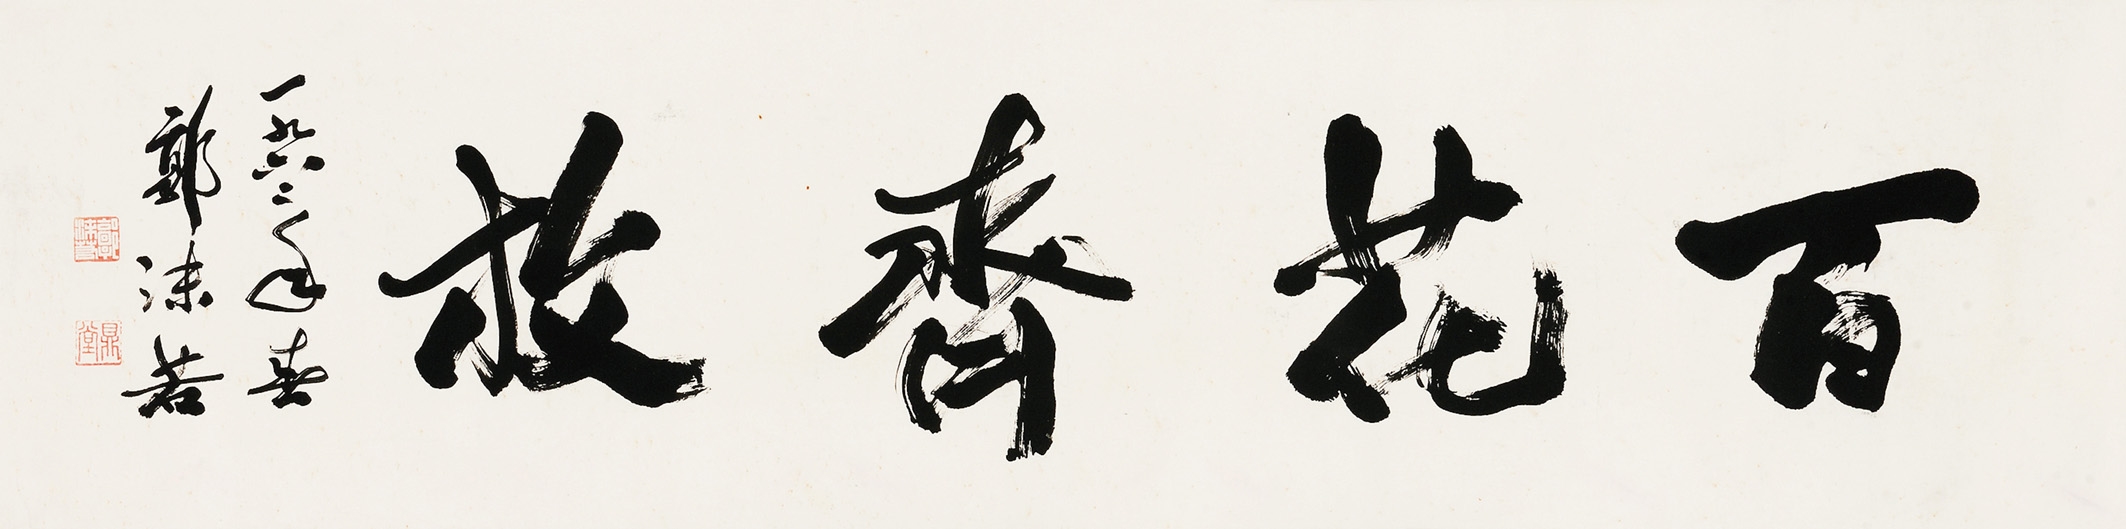 百花齊放
一九六二年春
郭沫若
郭沫若
鼎堂